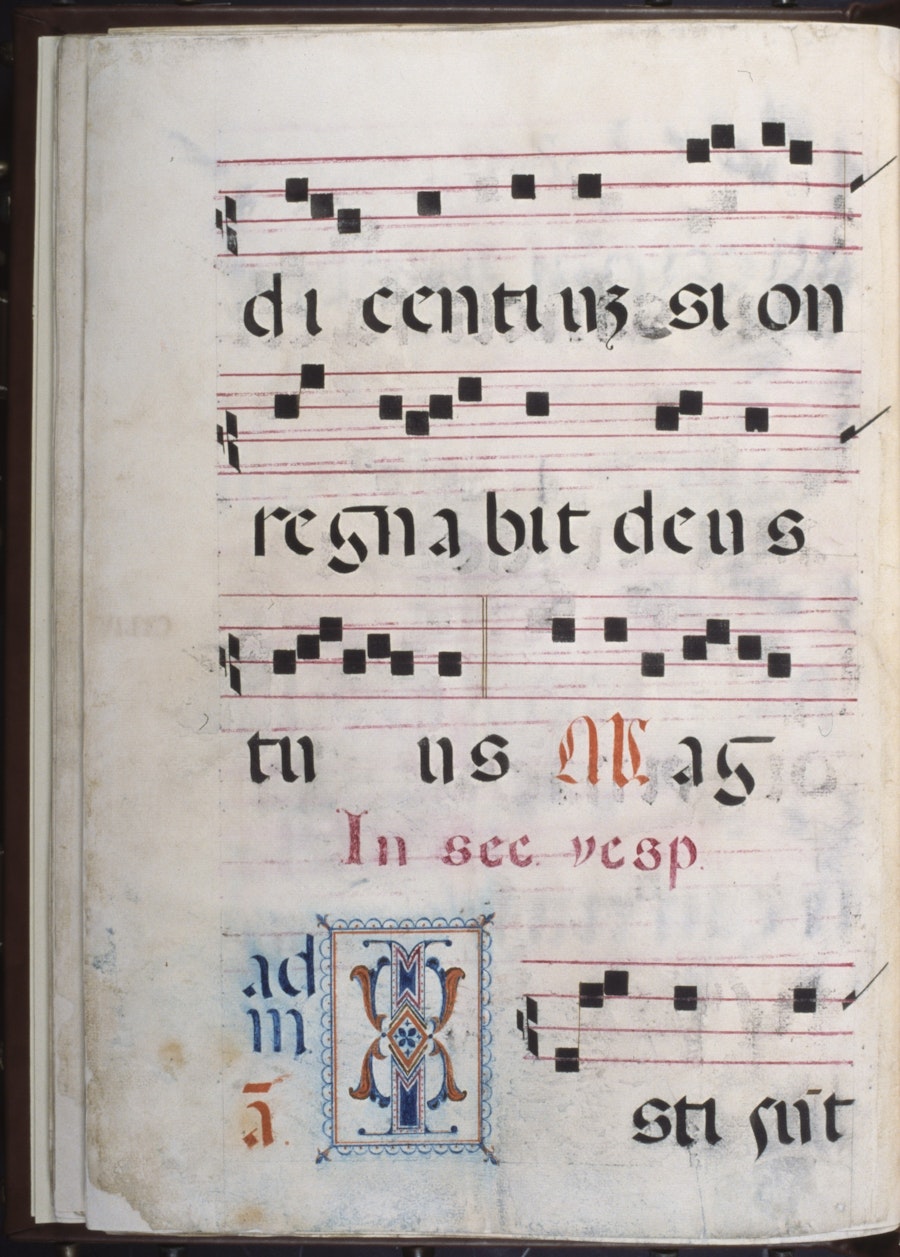 di centiuȝ sion
regnabit deus
tu us Mag
In sec vesp.
ad
m
ā.
I sti sūt